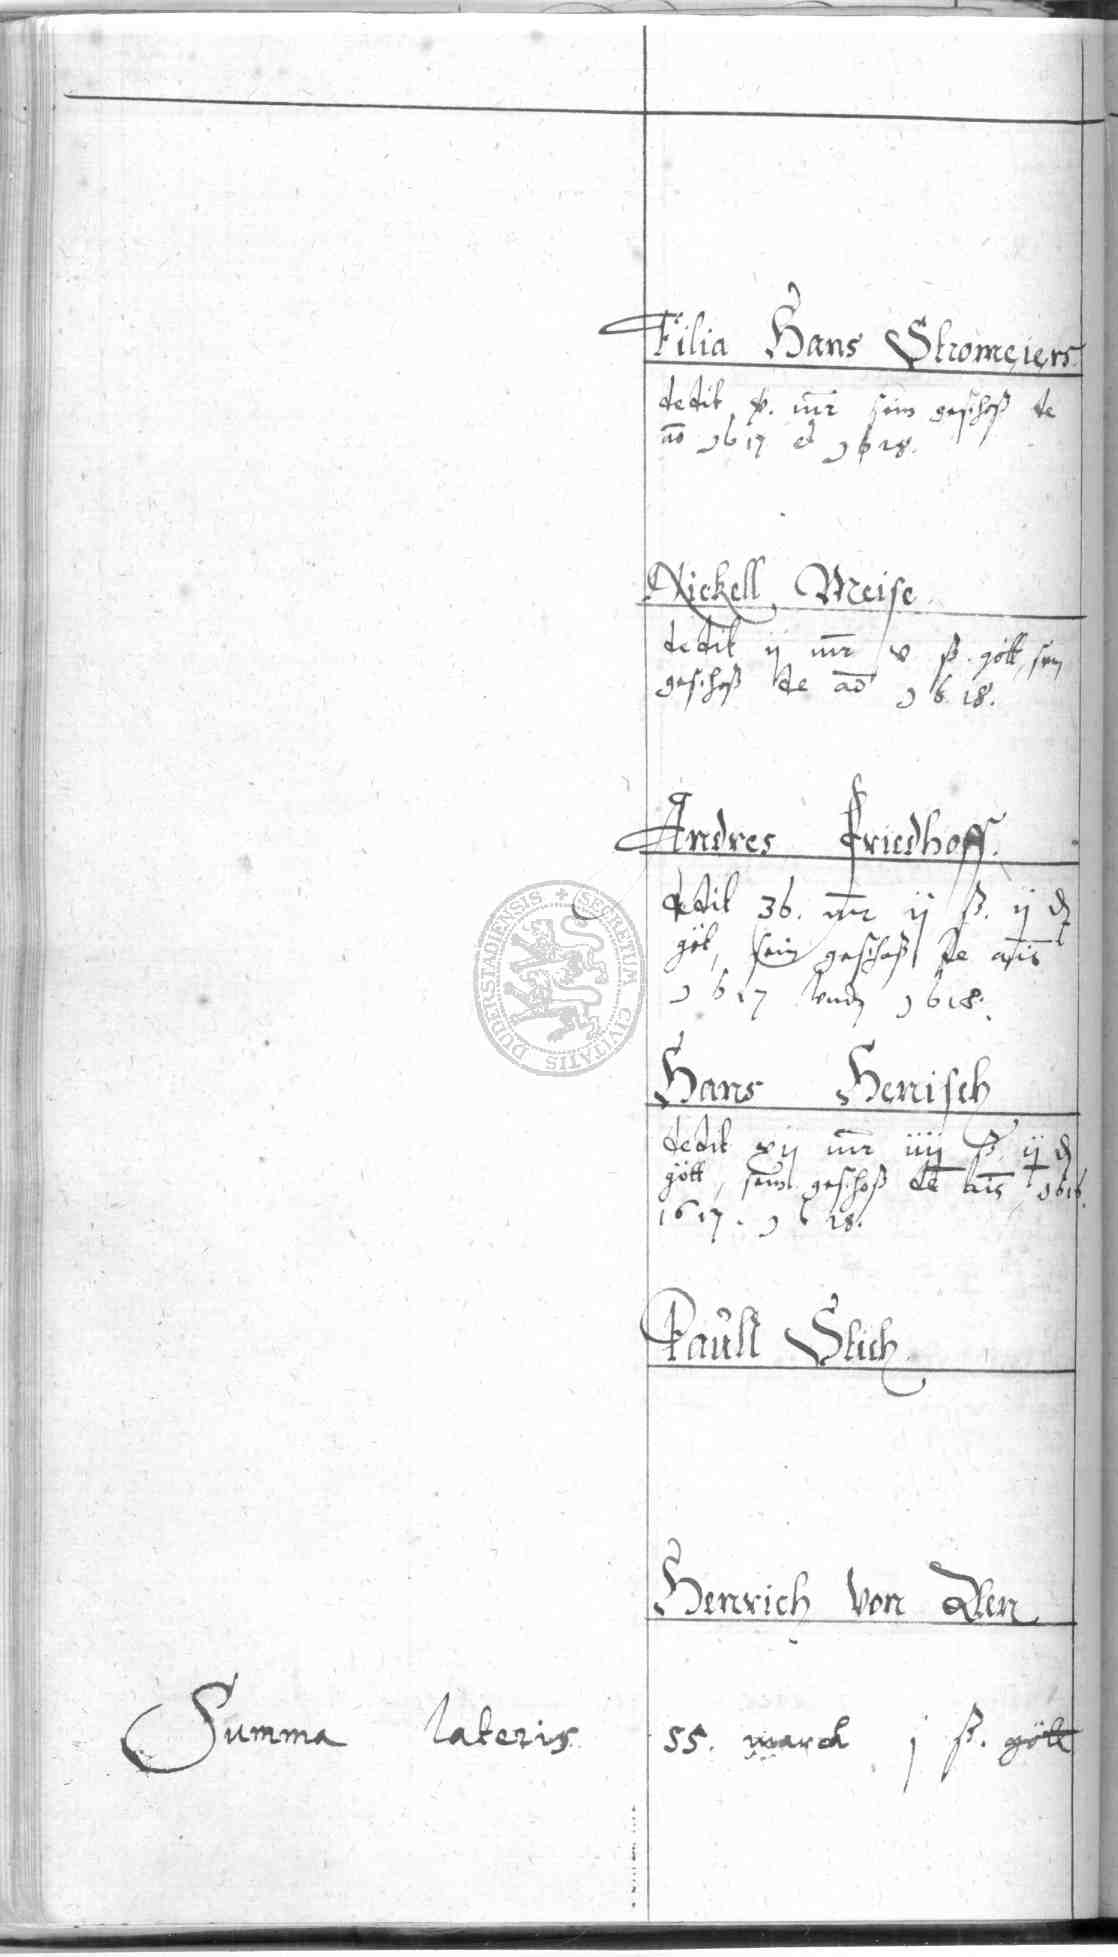 Filia Hans Stromeiers
dedit v. mr sein geschoß de
ao 1617 et 1618.
Nickell Meise
dedit ij mr v ß. gött, sein
geschoß de ao 1618.
Andres Friedhoff.
dedit 36. mr ij ß. ij d
göt, sein geschoß de anis
1617 vnd 1618.
Hans Henisch
dedit xij mr iiij ß. ij d
gött, sein geschoß de anis 1616.
1617. 1618.
Paull Stich
Henrich von
Summa lateris 55. marck j ß. gött
SECRETUM CIVITATIS DUDERSTADIENSIS